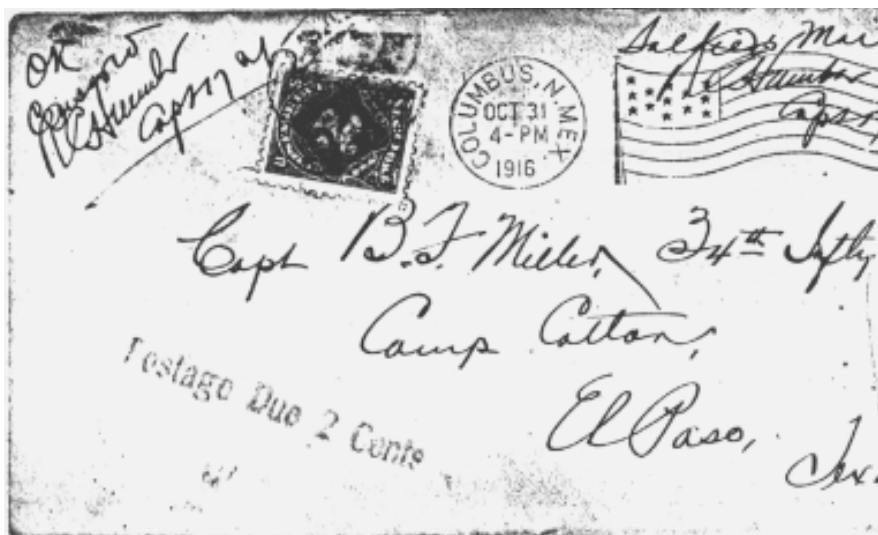 OK
Censored
Capt 17
COLUMBUS, N. MEX.
OCT 31
4-PM
1916
Soldiers Mai
Capt 17
Capt B.F. Miller, 34th Infty
Camp Cotton,
El Paso,
Tex.
Postage Due 2 Cents